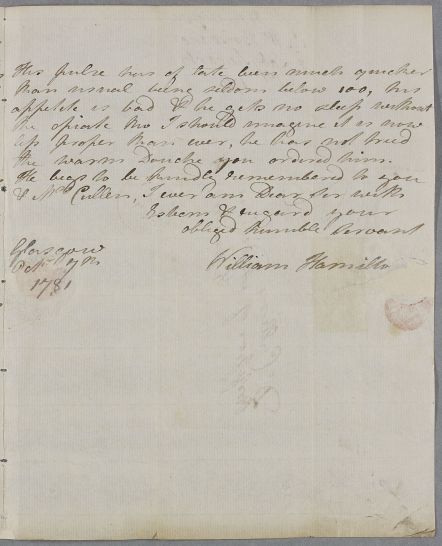 His pulse has of late been much quicker
than usual being seldom below 100, his
appetite is bad & he gets no sleep without
the opiate tho I should imagine it is now
less proper than ever, he has not tried
the warm Douche you ordered him.
He begs to be kindly remembered to you
& Mrs Cullen, I ever am Dear Sir with
Esteem & regard your
obliged humble Servant
William Hamilton
Glasgow
Octr. 7th
1781